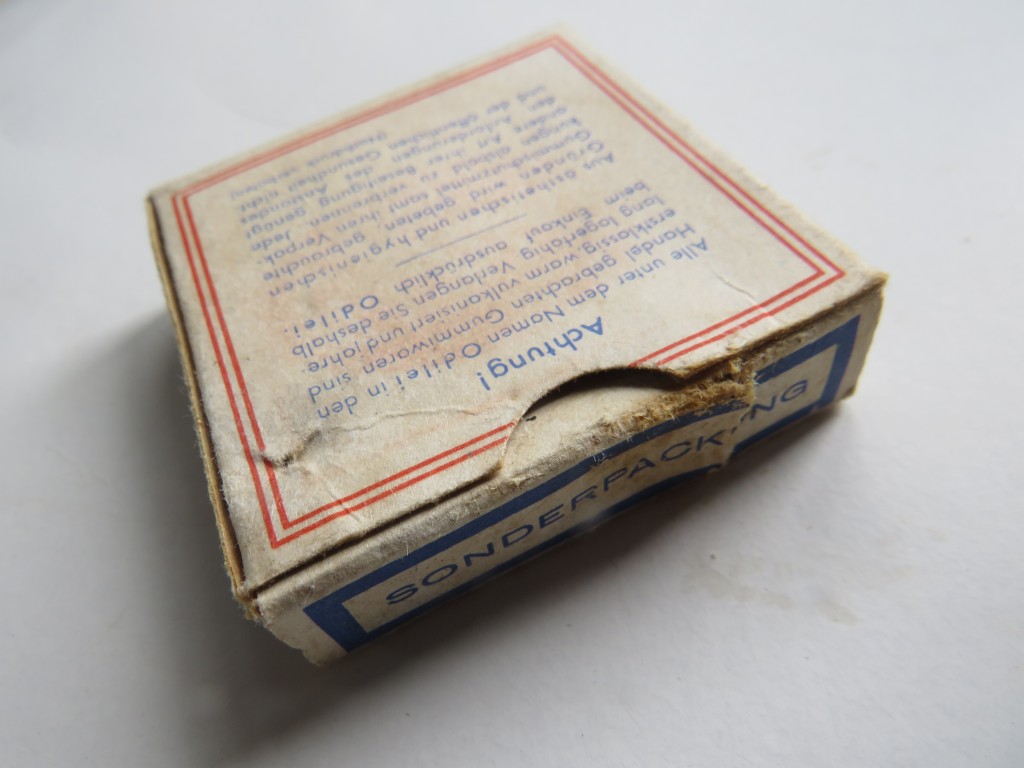 Achtung!
Alle unter dem Namen Odilei in den
Handel gebrachten Gummiwaren sind
erstklassig warm vulkanisiert und jahre-
lang lagerfähig. Verlangen Sie deshalb
beim Einkauf ausdrücklich Odilei.
Aus ästhetischen und hygienischen
Gründen wird gebeten, gebrauchte
Gummischutzmittel samt ihren Verpak-
kungen alsbald zu verbrennen. Jede
andere Art ihrer Beseitigung genügt
der Anforderungen des
und der öffentlichen Gesundheit
SONDERPACKUNG